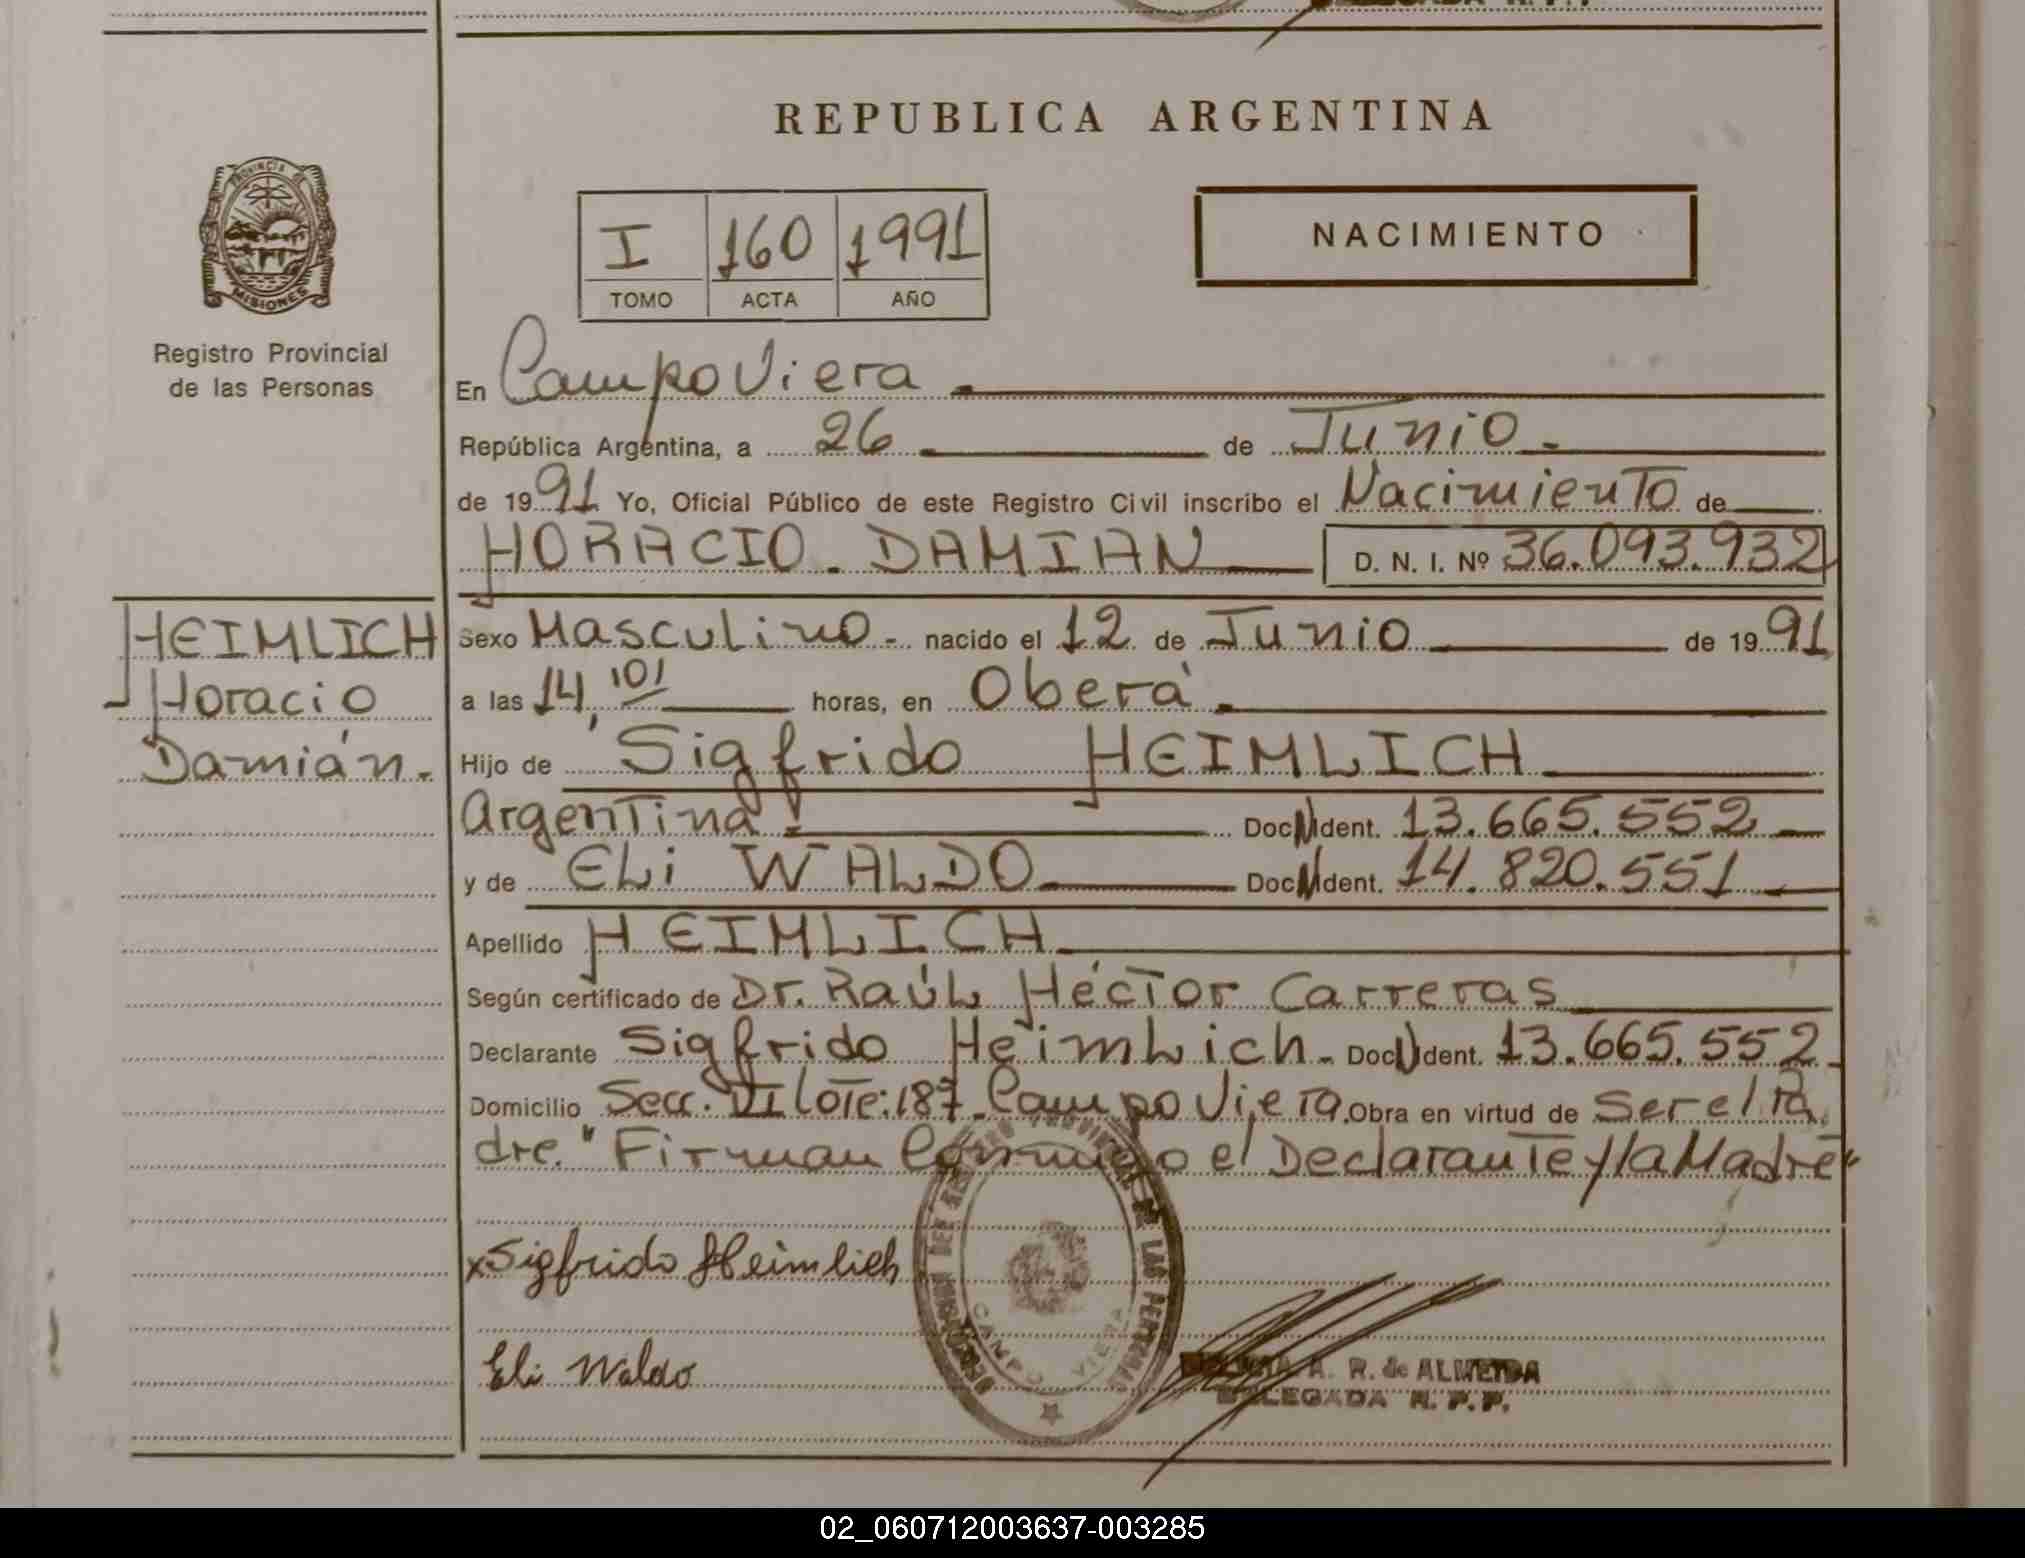 REPUBLICA ARGENTINA
PROVINCIA DE
MISIONES
Registro Provincial
de las Personas
I 160 1991
TOMO ACTA AÑO
NACIMIENTO
En Campo Viera
República Argentina, a 26 de Junio.
de 1991 Yo, Oficial Público de este Registro Civil inscribo el Nacimiento de
HORACIO. DAMIAN D. N. I. Nº 36.093.932
HEIMLICH
Horacio
Damián.
Sexo Masculino.- nacido el 12 de Junio de 1991
a las 14,101 horas, en Oberá.
Hijo de Sigfrido HEIMLICH
Argentina. Doc N Ident. 13.665.552
y de ELi WALDO Doc N Ident. 14.820.551
Apellido HEIMLICH
Según certificado de Dr. Raúl Héctor Carreras
Declarante Sigfrido Heimlich. Doc N Ident. 13.665.552
Domicilio Secc. VI Lote: 187. Campo Viera. Obra en virtud de ser el Pa
dre. "Firman Conmigo el Declarante y la Madre"
x Sigfrido Heimlich
Eli Waldo
PROVINCIAL DE LAS PERSONAS
CAMPO VIERA
A. R. de ALMEIDA
DELEGADA R. P. P.
02_060712003637-003285